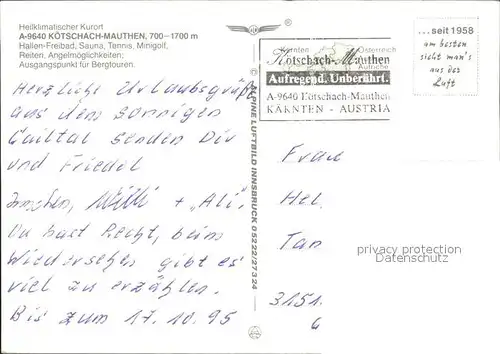 Heilklimatischer Kurort
A-9640 KÖTSCHACH-MAUTHEN, 700–1700 m
Hallen-Freibad, Sauna, Tennis, Minigolf,
Reiten, Angelmöglichkeiten;
Ausgangspunkt für Bergtouren.
Herzliche Urlaubsgrüße
aus dem sonnigen
Gailtal senden Dir
und Friedel
Willi + "Ali".
Du hast Recht, beim
Wiedersehen gibt es
viel zu erzählen.
Bis zum 17.10.95
ALPINE LUFTBILD INNSBRUCK 05222/27324
Kärnten Österreich
Kötschach-Mauthen
Austriche
Aufregend. Unberührt.
A-9640 Kötschach-Mauthen
KÄRNTEN - AUSTRIA
...seit 1958
am besten
sieht man's
aus der
Luft
Frau
Hel
Tan
3151
privacy protection
Datenschutz